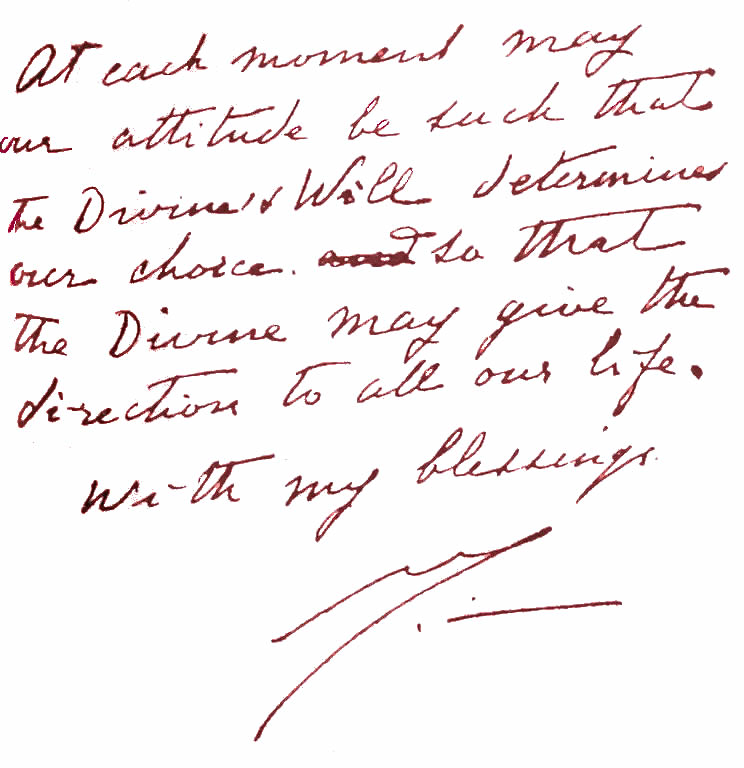 At each moment may
our attitude be such that
the Divine's Will determines
our choice. so that
the Divine may give the
direction to all our life.
With my blessings